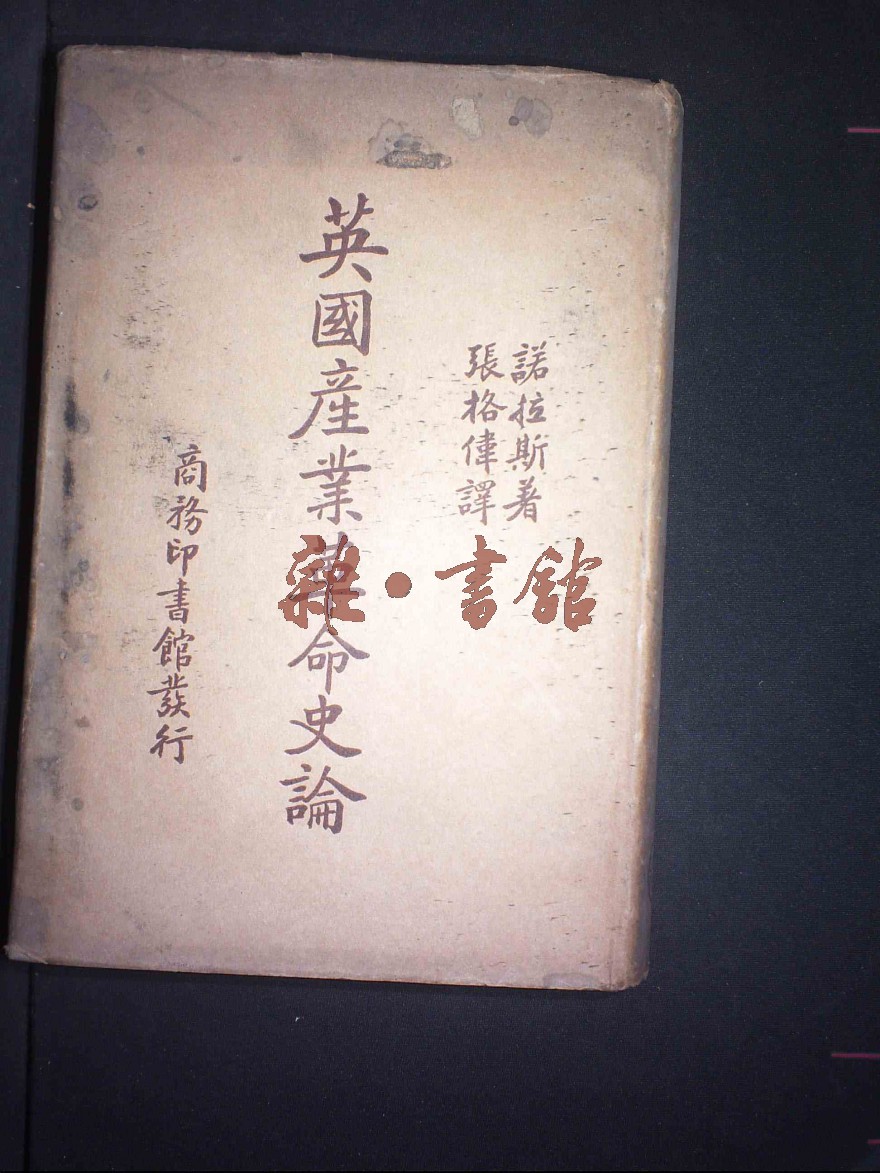 諾拉斯著
張格偉譯
英國産業革命史論
商務印書館發行
雜·書館